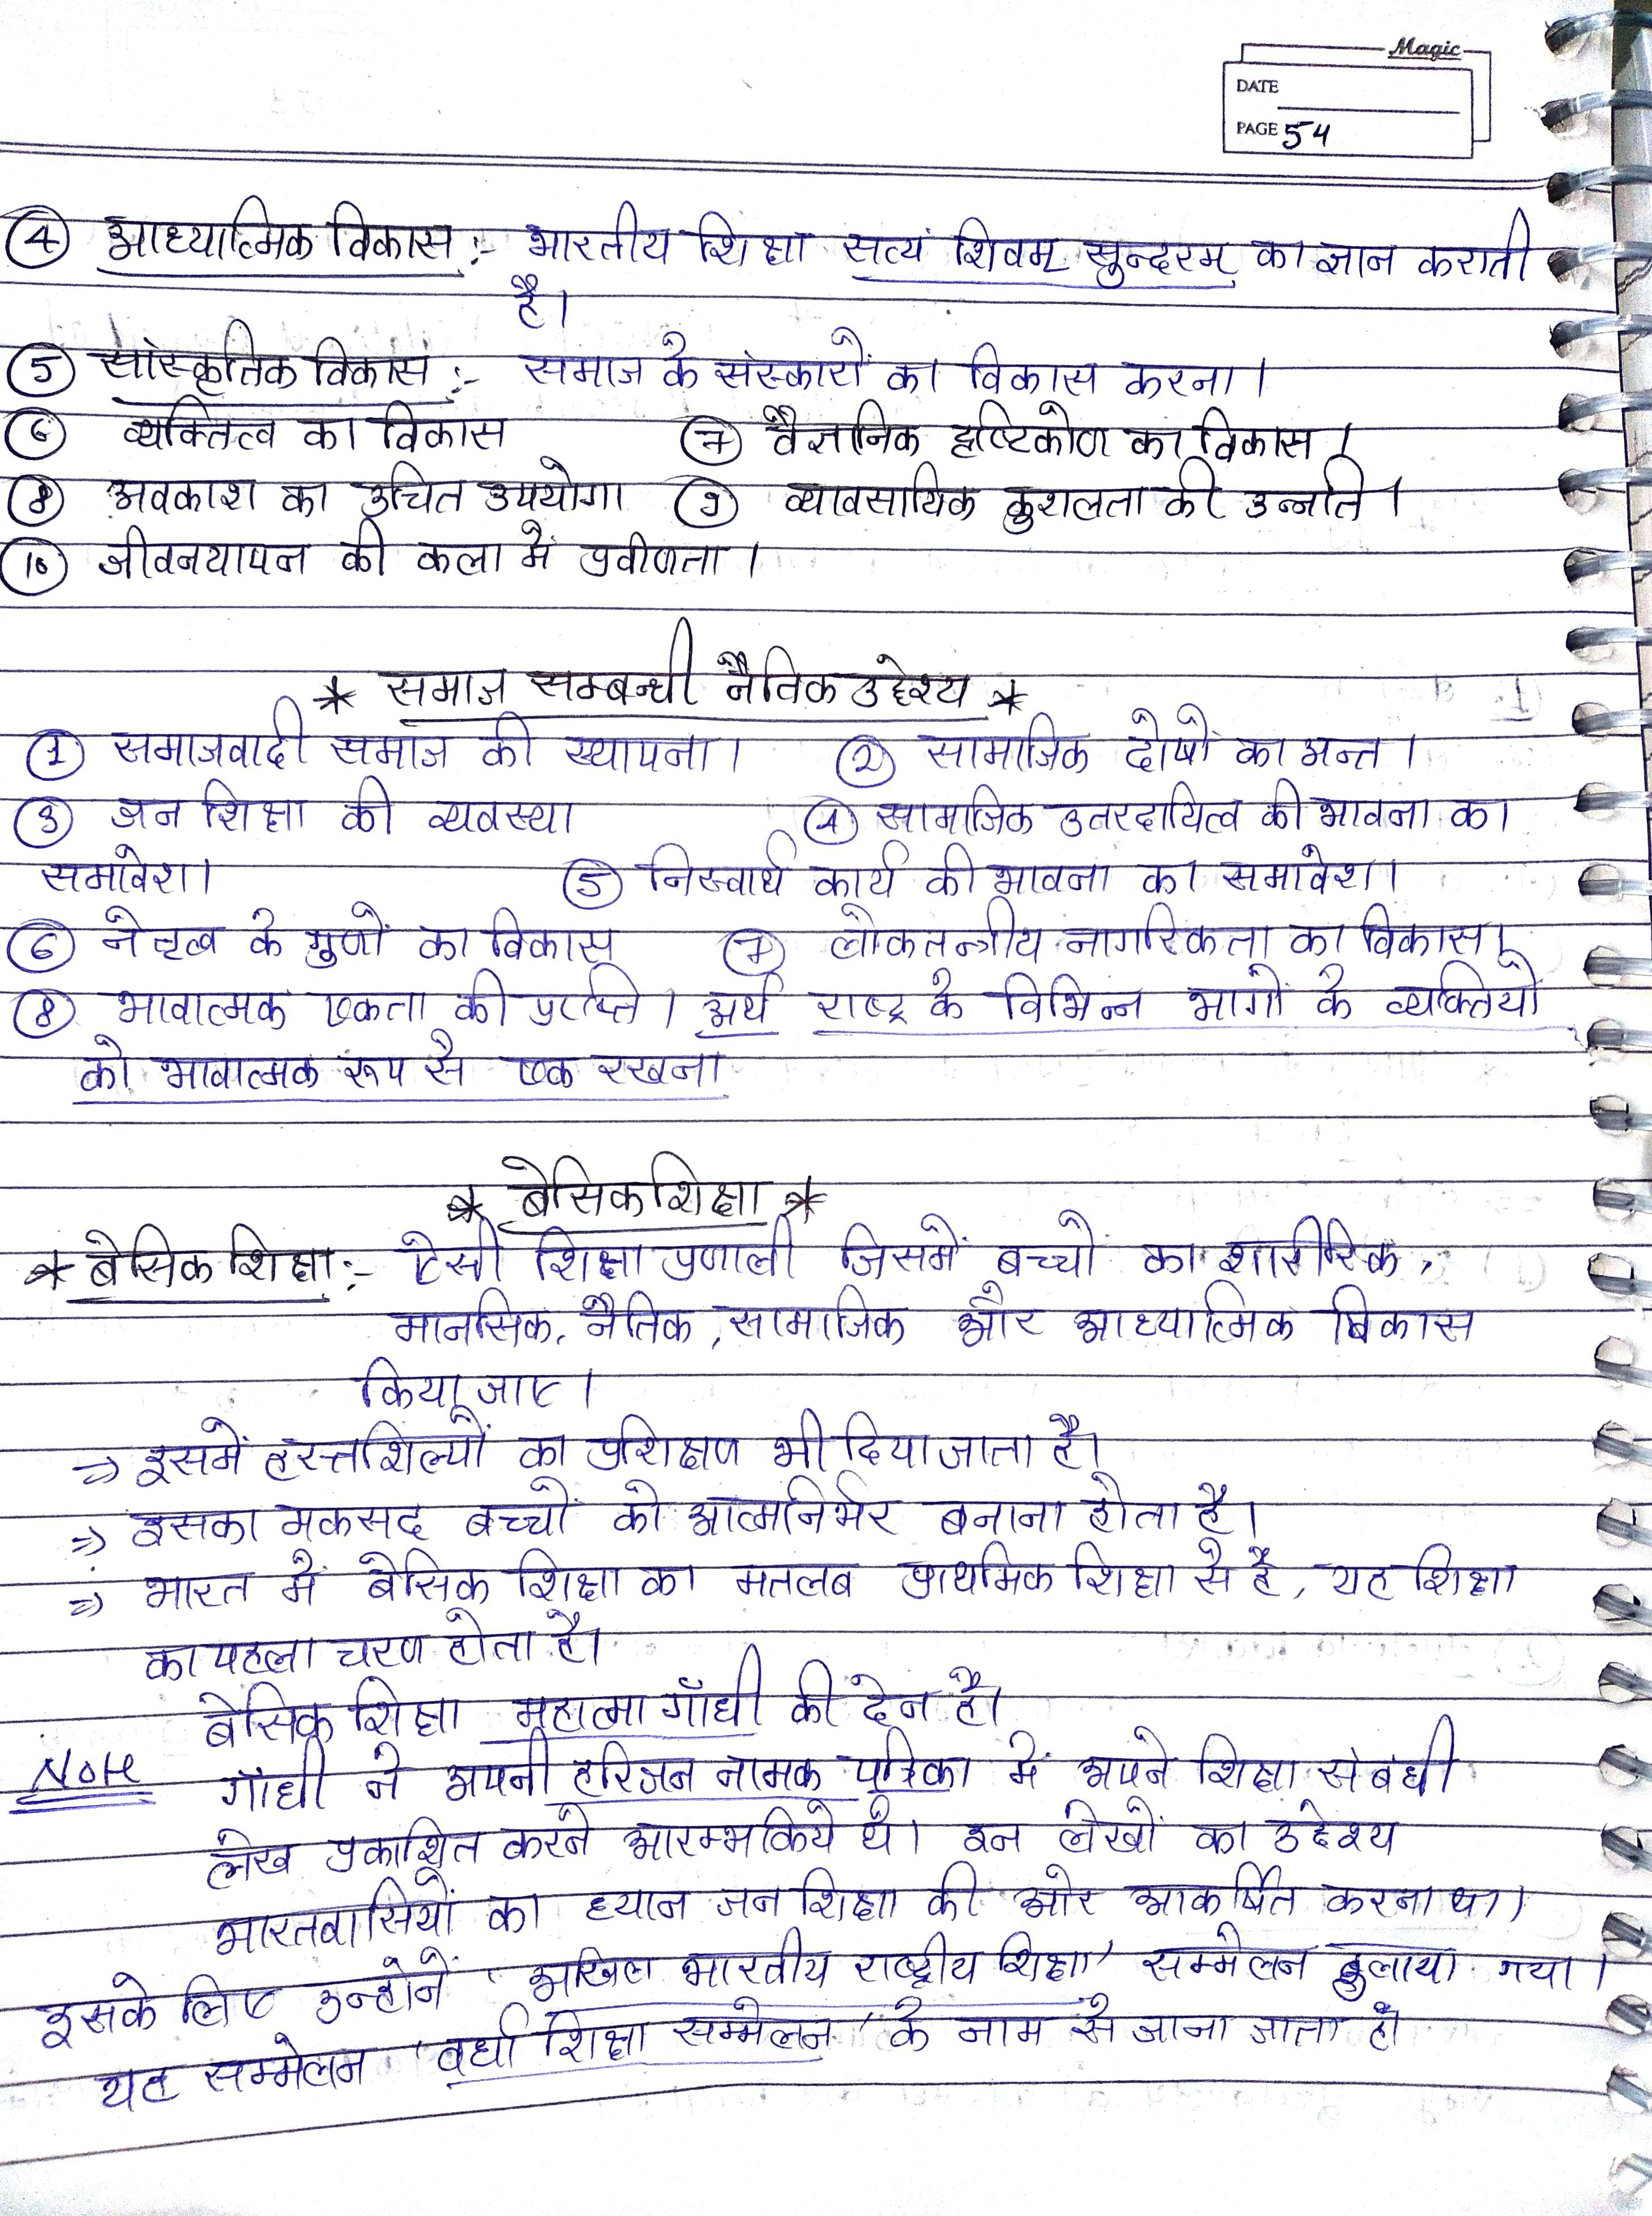 Magic
DATE
PAGE 54
④ आध्यात्मिक विकास :- भारतीय शिक्षा सत्यं शिवम् सुन्दरम् का ज्ञान कराती
है।
⑤ सांस्कृतिक विकास :- समाज के संस्कारों का विकास करना।
⑥ व्यक्तित्व का विकास ⑦ वैज्ञानिक दृष्टिकोण का विकास।
⑧ अवकाश का उचित उपयोग। ⑨ व्यावसायिक कुशलता की उन्नति।
⑩ जीवनयापन की कला में प्रवीणता।
* समाज सम्बन्धी नैतिक उद्देश्य *
① समाजवादी समाज की स्थापना। ② सामाजिक दोषों का अन्त।
③ जन शिक्षा की व्यवस्था ④ सामाजिक उतरदायित्व की भावना का
समावेश। ⑤ निस्वार्थ कार्य की भावना का समावेश।
⑥ नेतृत्व के गुणों का विकास ⑦ लोकतन्त्रीय नागरिकता का विकास।
⑧ भावात्मक एकता की प्राप्ति। अर्थ राष्ट्र के विभिन्न भागों के व्यक्तियो
को भावात्मक रूप से एक रखना
* बेसिक शिक्षा *
* बेसिक शिक्षा :- ऐसी शिक्षा प्रणाली जिसमें बच्चों का शारीरिक,
मानसिक, नैतिक, सामाजिक और आध्यात्मिक विकास
किया जाए।
⇒ इसमें हस्तशिल्पों का प्रशिक्षण भी दिया जाता है।
⇒ इसका मकसद बच्चों को आत्मनिर्भर बनाना होता है।
⇒ भारत में बेसिक शिक्षा का मतलब प्राथमिक शिक्षा से है, यह शिक्षा
का पहला चरण होता है।
बेसिक शिक्षा महात्मा गाँधी की देन है।
Note गाँधी ने अपनी हरिजन नामक पत्रिका में अपने शिक्षा संबंधी
लेख प्रकाशित करने आरम्भ किये थे। इन लेखों का उद्देश्य
भारतवासियों का ध्यान जन शिक्षा की ओर आकर्षित करना था।
इसके लिए उन्होनें 'अखिल भारतीय राष्ट्रीय शिक्षा' सम्मेलन बुलाया गया।
यह सम्मेलन 'वर्धा शिक्षा सम्मेलन' के नाम से जाना जाता है।